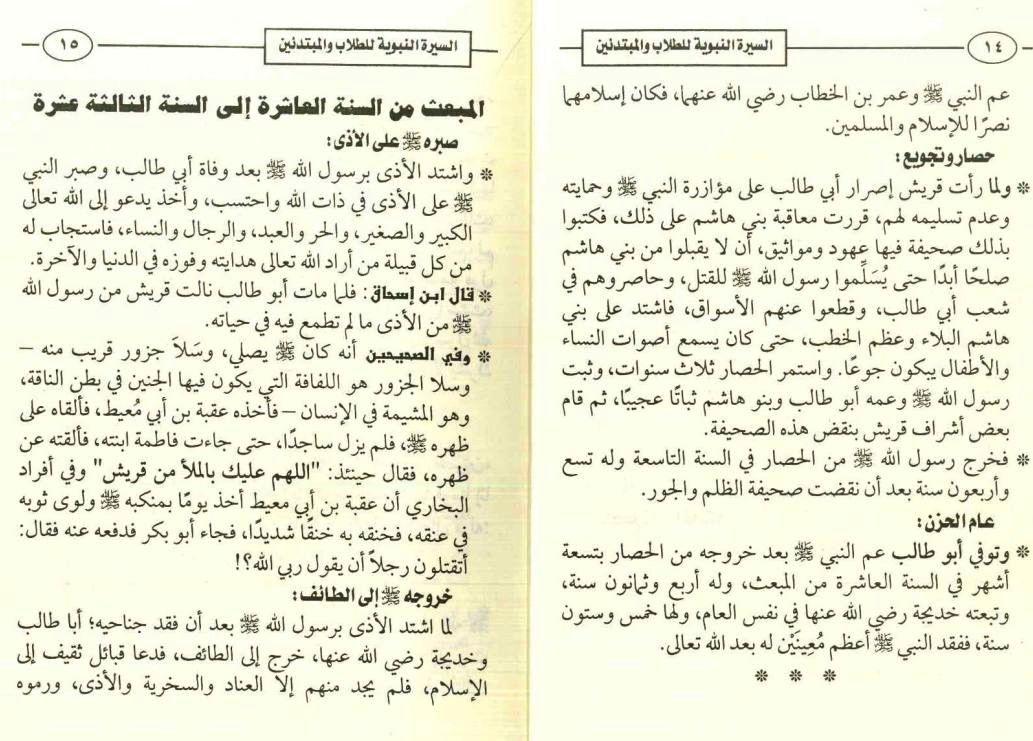 ١٤
السيرة النبوية للطلاب والمبتدئين
عم النبي ﷺ وعمر بن الخطاب رضي الله عنهما، فكان إسلامهما
نصرًا للإسلام والمسلمين.
حصار وتجويع:
* ولما رأت قريش إصرار أبي طالب على مؤازرة النبي ﷺ وحمايته
وعدم تسليمه لهم، قررت معاقبة بني هاشم على ذلك، فكتبوا
بذلك صحيفة فيها عهود ومواثيق، أن لا يقبلوا من بني هاشم
صلحًا أبدًا حتى يُسَلِّموا رسول الله ﷺ للقتل، وحاصروهم في
شعب أبي طالب، وقطعوا عنهم الأسواق، فاشتد على بني
هاشم البلاء وعظم الخطب، حتى كان يسمع أصوات النساء
والأطفال يبكون جوعًا. واستمر الحصار ثلاث سنوات، وثبت
رسول الله ﷺ وعمه أبو طالب وبنو هاشم ثباتًا عجيبًا، ثم قام
بعض أشراف قريش بنقض هذه الصحيفة.
* فخرج رسول الله ﷺ من الحصار في السنة التاسعة وله تسع
وأربعون سنة بعد أن نقضت صحيفة الظلم والجور.
عام الحزن:
* وتوفي أبو طالب عم النبي ﷺ بعد خروجه من الحصار بتسعة
أشهر في السنة العاشرة من المبعث، وله أربع وثمانون سنة،
وتبعته خديجة رضي الله عنها في نفس العام، ولها خمس وستون
سنة، ففقد النبي ﷺ أعظم مُعِينَيْن له بعد الله تعالى.
* * *
السيرة النبوية للطلاب والمبتدئين
١٥
المبعث من السنة العاشرة إلى السنة الثالثة عشرة
صبره ﷺ على الأذى:
* واشتد الأذى برسول الله ﷺ بعد وفاة أبي طالب، وصبر النبي
ﷺ على الأذى في ذات الله واحتسب، وأخذ يدعو إلى الله تعالى
الكبير والصغير، والحر والعبد، والرجال والنساء، فاستجاب له
من كل قبيلة من أراد الله تعالى هدايته وفوزه في الدنيا والآخرة.
* قال ابن إسحاق: فلما مات أبو طالب نالت قريش من رسول الله
ﷺ من الأذى ما لم تطمع فيه في حياته.
* وفي الصحيحين أنه كان ﷺ يصلي، وسَلاَ جزور قريب منه –
وسلا الجزور هو اللفافة التي يكون فيها الجنين في بطن الناقة،
وهو المشيمة في الإنسان – فأخذه عقبة بن أبي مُعيط، فألقاه على
ظهره ﷺ، فلم يزل ساجدًا، حتى جاءت فاطمة ابنته، فألقته عن
ظهره، فقال حينئذ: "اللهم عليك بالملأ من قريش" وفي أفراد
البخاري أن عقبة بن أبي معيط أخذ يومًا بمنكبه ﷺ ولوى ثوبه
في عنقه، فخنقه به خنقًا شديدًا، فجاء أبو بكر فدفعه عنه فقال:
أتقتلون رجلاً أن يقول ربي الله؟!
خروجه ﷺ إلى الطائف:
لما اشتد الأذى برسول الله ﷺ بعد أن فقد جناحيه؛ أبا طالب
وخديجة رضي الله عنها، خرج إلى الطائف، فدعا قبائل ثقيف إلى
الإسلام، فلم يجد منهم إلا العناد والسخرية والأذى، ورموه